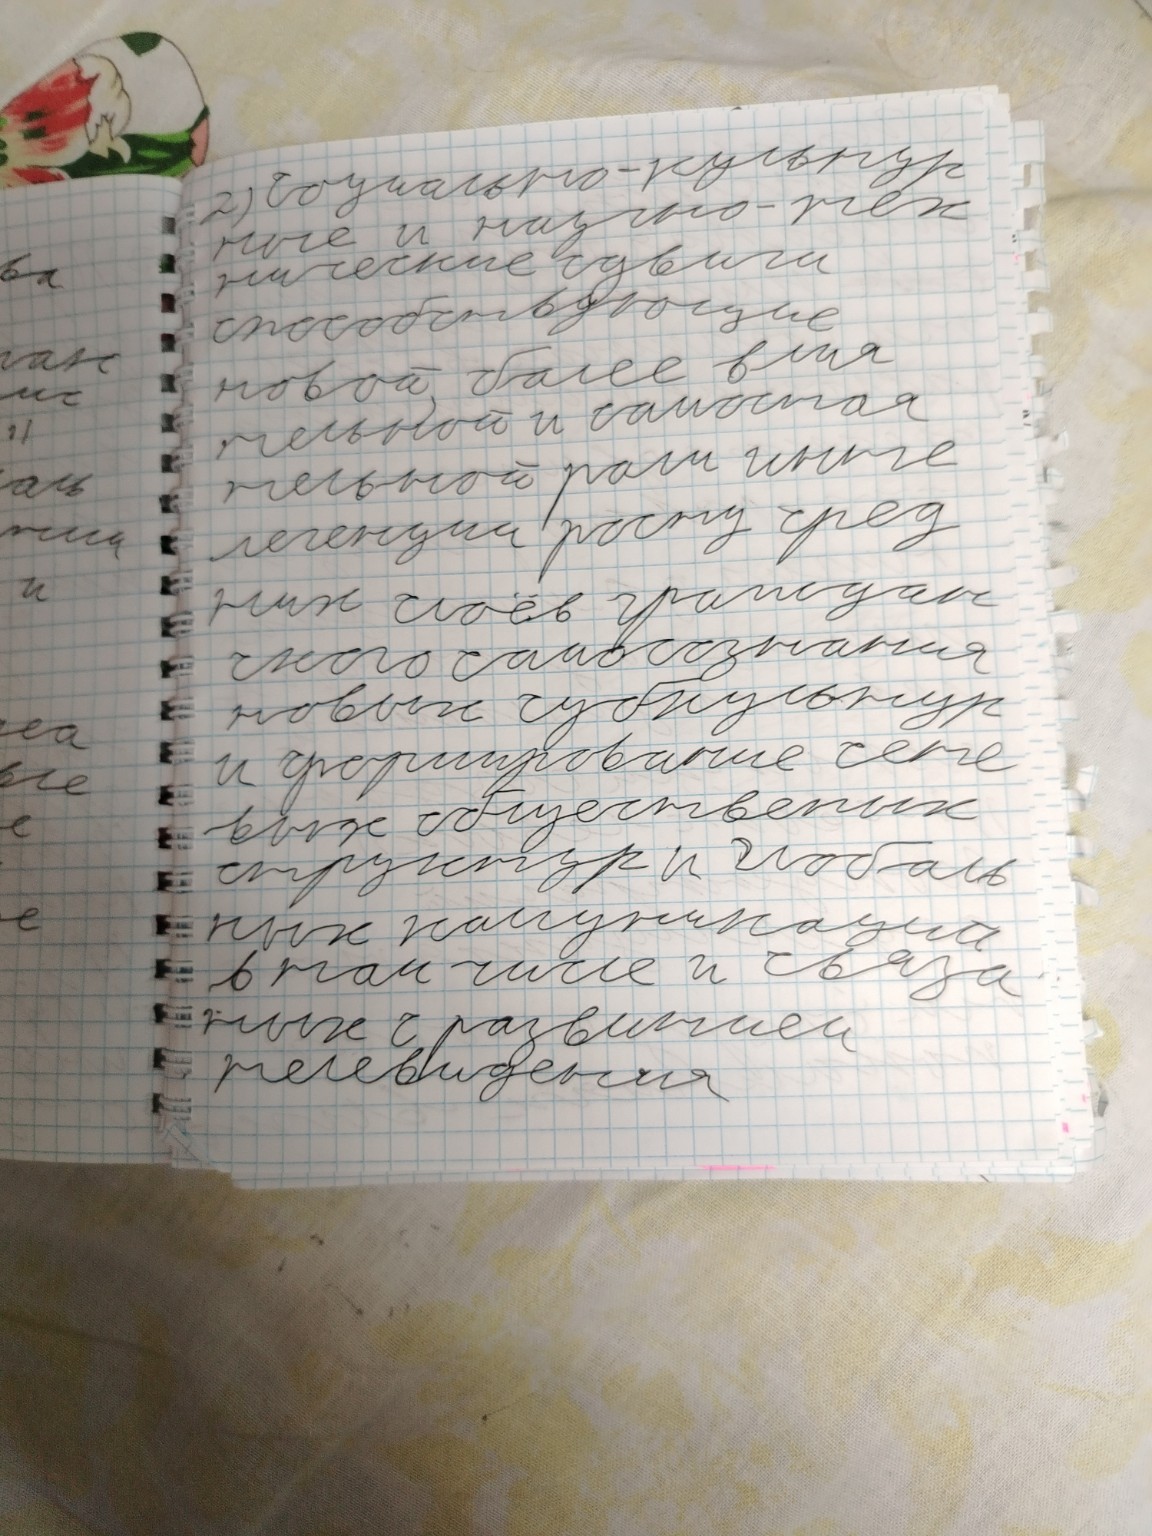 2) Социально-культур
ные и научно-тех
нические сдвиги
способствующие
новой, более влия
тельной и самостоя
тельной роли инте
легенции росту сред
них слоёв граждан
ского самосознания
новых субкультур
и формирование сете
вых общественых
структур и глобаль
ных камуникаций
в том числе и связа
ных с развитием
телевидения